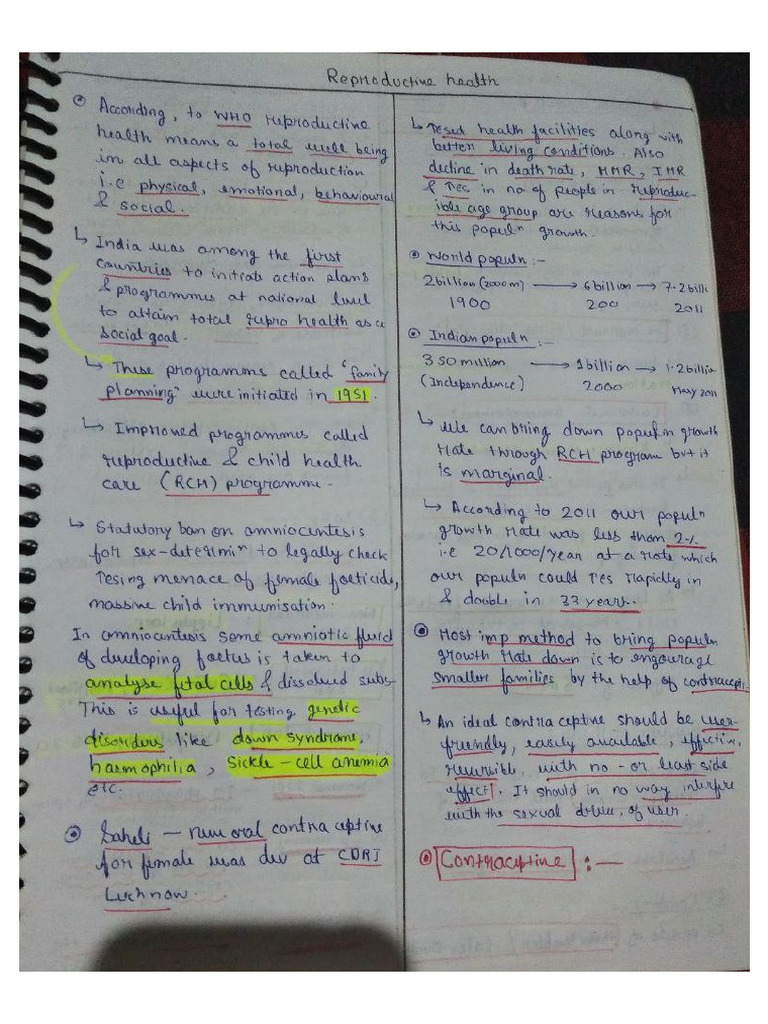 Reproductive health
According, to WHO reproductive
health means a total well being
in all aspects of reproduction
i.e physical, emotional, behavioural
& social.
↳ India was among the first
countries to initiate action plans
& programmes at national level
to attain total repro health as a
social goal.
↳ These programms called "family
planning" were initiated in 1951.
↳ Improved programmes called
reproductive & child health
care (RCH) programme.
↳ Statutory ban on amniocentesis
for sex-determinn to legally check
↑sing menace of female foeticide,
massive child immunisation.
In amniocentesis some amniotic fluid
of developing foetus is taken to
analyse fetal cells & dissolved subs-
This is useful for testing genetic
disorders like down syndrome,
haemophilia, sickle-cell anemia
etc.
Saheli – new oral contraceptive
for female was dev at CDRI
Lucknow.
↳ ↑esed health facilities along with
better living conditions. Also
decline in death rate, MMR, IMR
& ↑es in no of people in reproduc-
ible age group are reasons for
this populn growth.
World populn :-
2billion (2000m) → 6 billion → 7.2 bill
1900 200 2011
Indian populn :-
350 million → 1 billion → 1.2 billia
(Independence) 2000 May 2011
↳ We can bring down populn growth
rate through RCH program but it
is marginal.
↳ According to 2011 our populn
growth rate was less than 2%
i.e 20/1000/year at a rate which
our populn could ↑es rapidly in
& double in 33 years.
Most imp method to bring populn
growth rate down is to engourage
smaller families by the help of contracepti.
↳ An ideal contraceptive should be user-
friendly, easily available, effective,
reversible, with no-or least side
effect. It should in no way interfere
with the sexual drive, of user.
Contraceptive :—